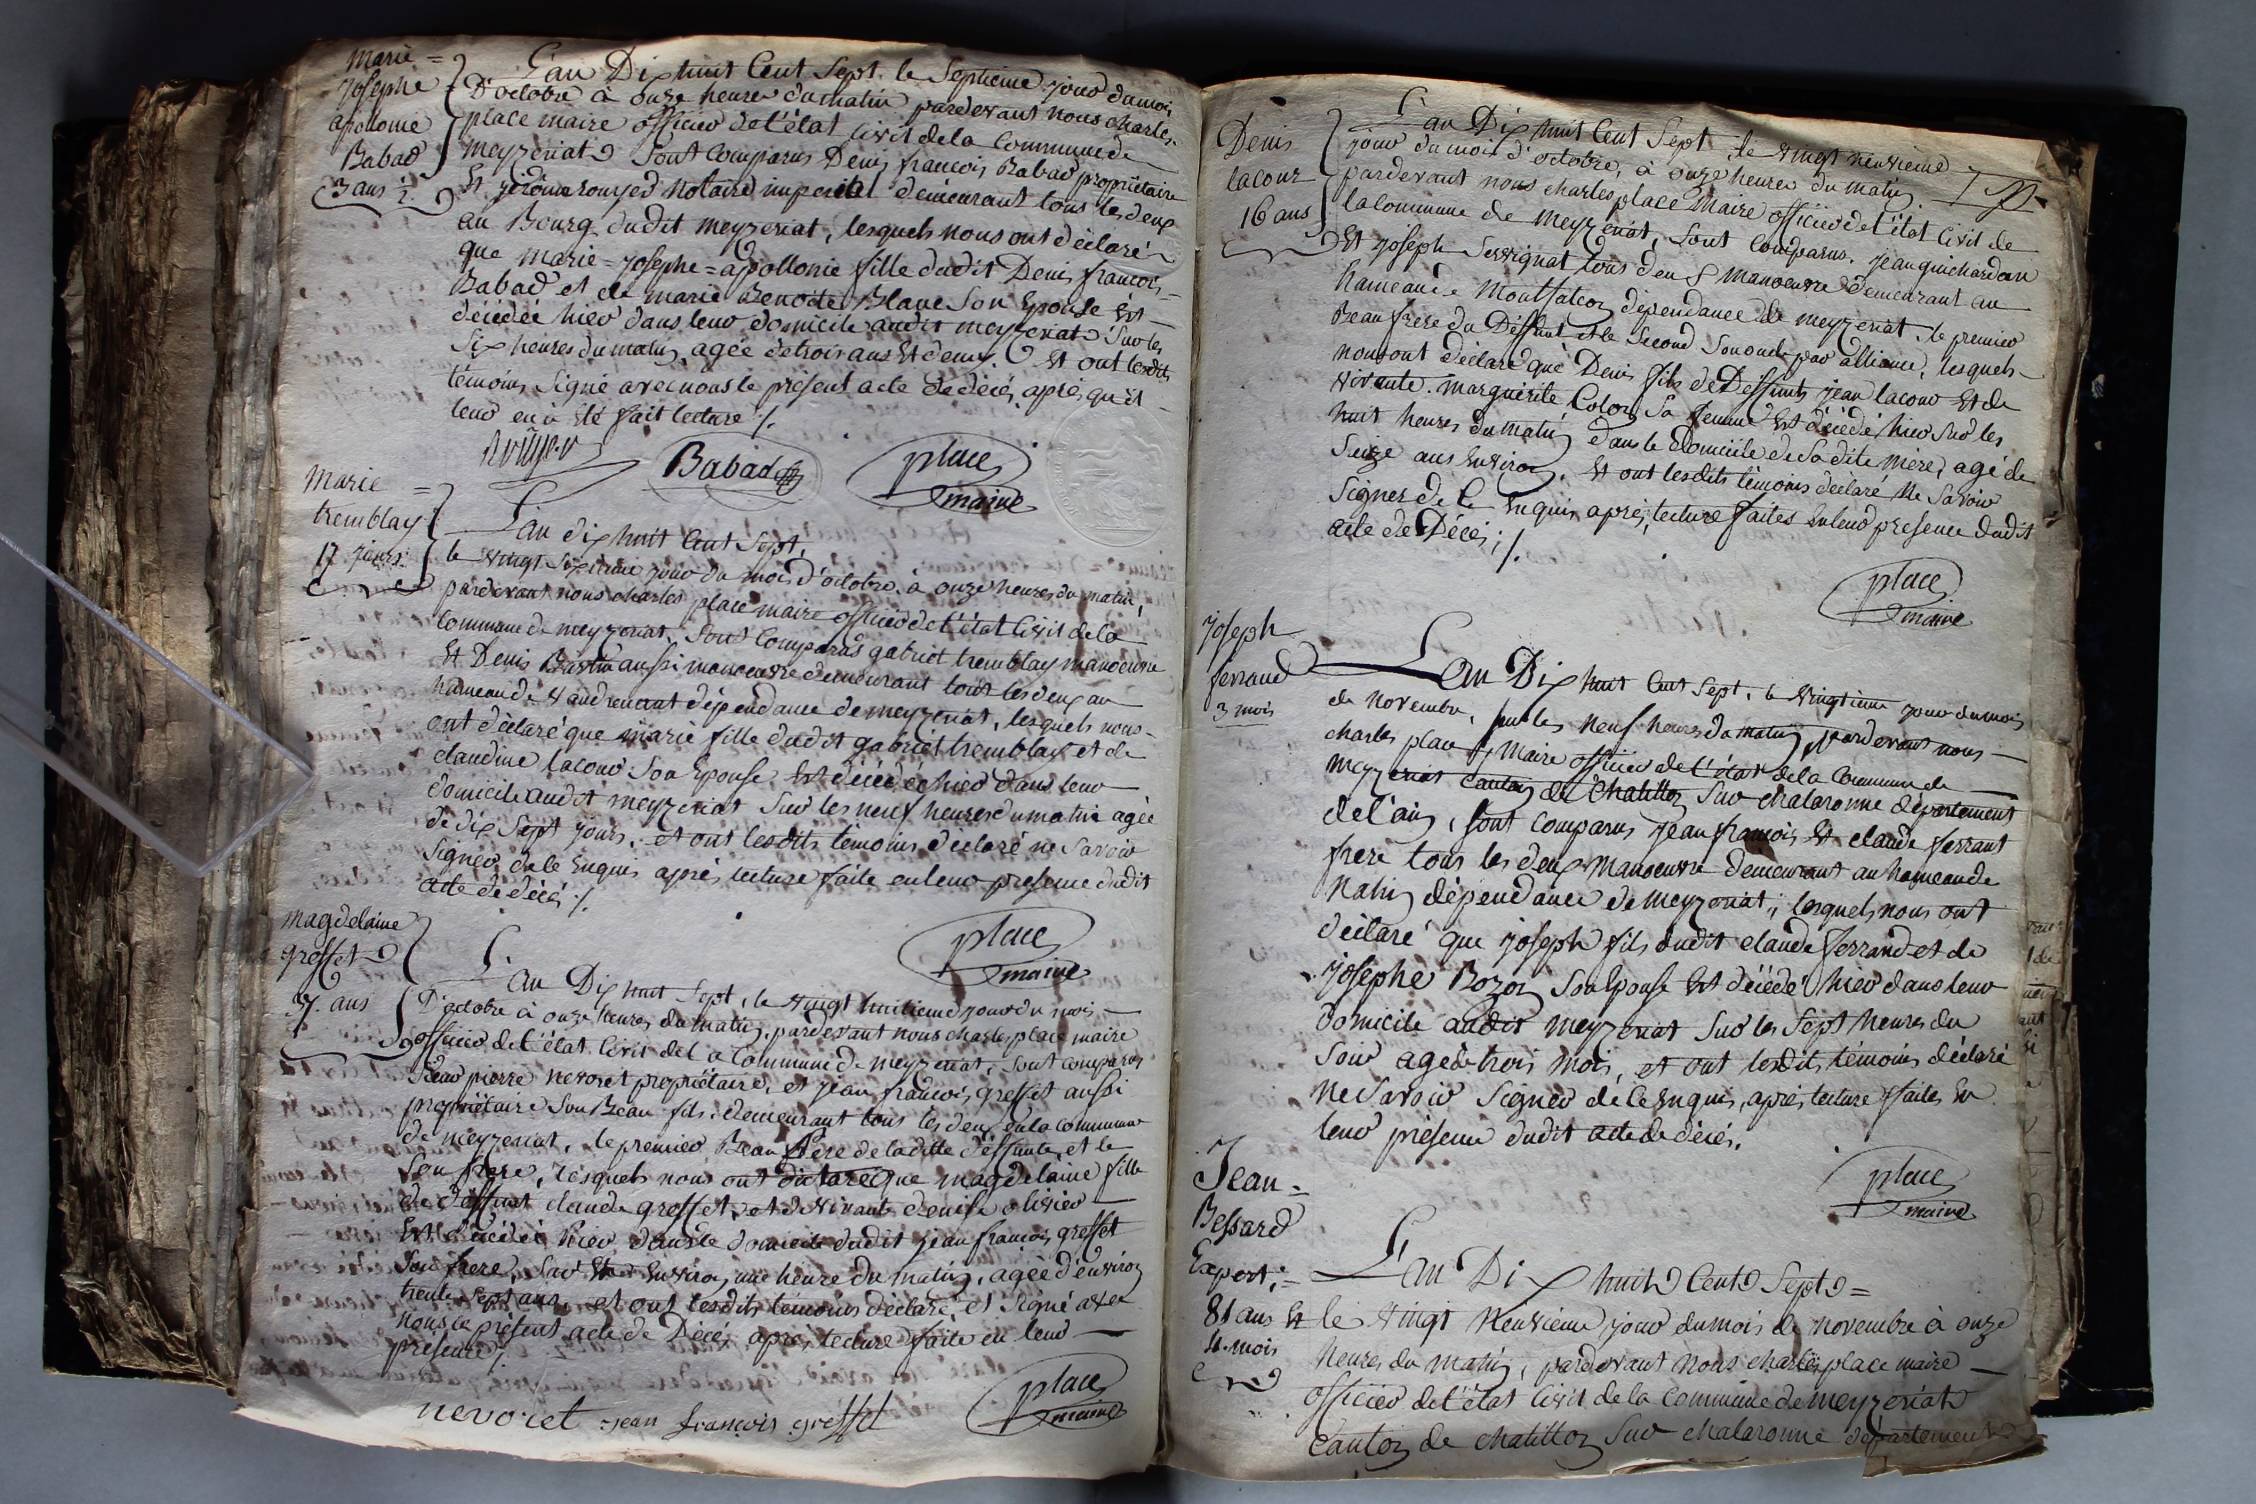 Marie =
Josephe
apolonie
Babad
3 ans ½
L'an Dix huit Cent Sept. le Septieme jour du mois
D'octobre à onze heures du matin pardevant nous charles
place maire officier de l'état civil de la Commune de
meyzeriat Sont Comparus Denis françois Babad propriétaire
Et jérôme rouyer Notaire imperial demeurant tous les deux
au Bourg dudit meyzeriat, lesquels nous ont déclaré
que marie = josephe = apollonie fille dudit Denis françois
Babad et de marie Benoite Blanc Son Epouse Est
décédée hier dans leur domicile audit meyzeriat Sur les
Six heures du matin, agée de trois ans Et demy Et ont lesdits
témoins Signé avec nous le présent acte de décés, après qu'il
leur en à été fait lecture ./.
rouyer Babad place
maire
Marie =
tremblay
17 jours
L'an dix huit Cent Sept,
le vingt Sixieme jour du mois d'octobre à onze heures du matin,
pardevant nous charles place maire officier de l'état Civil de la
Commune de meyzeriat, Sont Comparus gabriel tremblay manoeuvre
Et Denis aussi manoeuvre demeurant tous les deux au
hameau de dépendance de meyzeriat, lesquels nous
ont déclaré que marie fille dudit gabriel tremblay et de
claudine lacour Son Epouse Est décédée hier dans leur
domicile audit meyzeriat Sur les neuf heures du matin agée
de dix Sept jours, et ont lesdits témoins déclaré ne Savoir
Signer de le Enquis après lecture faite en leur presence dudit
acte de décés ./.
place
maire
magdelaine
greffet
37. ans
L'an Dix huit Sept, le vingt huitieme jour du mois
D'octobre à onze heures du matin, pardevant nous charles place maire
officier de l'état Civil de la Commune de meyzeriat, Sont comparus
Sieur pierre nevoret propriétaire, et jean françois greffet aussi
propriétaire Son Beau fils, demeurant tous les deux en la commune
de meyzeriat, le premier Beau Père de la ditte déffunte, et le
Son frere, lesquels nous ont déclaré que magdelaine fille
de déffunt claude greffet, et de vivante denise olivier
Est décédée hier dans le domicile dudit jean françois greffet
Son frere, Sur Environ une heure du matin, agée d'environ
trente Sept ans, et ont lesdits témoins déclaré, et Signé avec
nous le présent acte de Décés après lecture faite en leur
présence ./.
nevoret jean françois greffet place
maire
Denis
lacour
16 ans
L'an Dix huit Cent Sept, le vingt neuvieme
jour du mois d'octobre, à onze heures du matin
pardevant nous charles place Maire officier de l'état Civil de
la Commune de meyzeriat, Sont Comparus. jean guichardan
Et joseph Servignat tous deux manoeuvre demeurant au
hameau de Montfalcon dépendance de meyzeriat, le premier
Beau frere du Déffunt, et le Second Son oncle par alliance, lesquels
nous ont déclaré que Denis fils de Deffunts jean lacour Et de
vivante marguerite Colon Sa femme Est décédé hier Sur les
huit heures du matin dans le Domicile de Sa dite mère, agé de
Seize ans Environ. Et ont lesdits témoins déclaré Ne Savoir
Signer de Ce Enquis après lecture faites en leur presence dudit
acte de Décés ; ./.
place
maire
joseph
ferrand
3 mois
L'an Dix huit Cent Sept, le vingtieme jour du mois
de novembre, sur les neuf heures du matin, pardevant nous
charles place Maire officier de l'état de la Commune de
meyzeriat Canton de Chatillon Sur chalaronne département
de l'ain, Sont comparus jean françois Et claude ferrant
frere tous les deux Manoeuvre demeurant au hameau de
dépendance de meyzeriat, lesquels nous ont
déclaré que joseph fils dudit claude ferrand et de
josephe Bozon Son Epouse Est décédé hier dans leur
domicile audit meyzeriat Sur les Sept heures du
Soir agé de trois mois, et ont lesdits témoins déclaré
ne Savoir Signer de Ce Enquis, après lecture faites En
leur présence dudit acte de décés.
place
maire
Jean =
Bessard
Expert ; =
81 ans Et
4 mois
L'an Dix huit Cent Sept =
le vingt Neuvieme jour du mois de novembre à onze
heures du matin, pardevant nous charles place maire
officier de l'état Civil de la Commune de meyzeriat
Canton de chatillon Sur chalaronne département